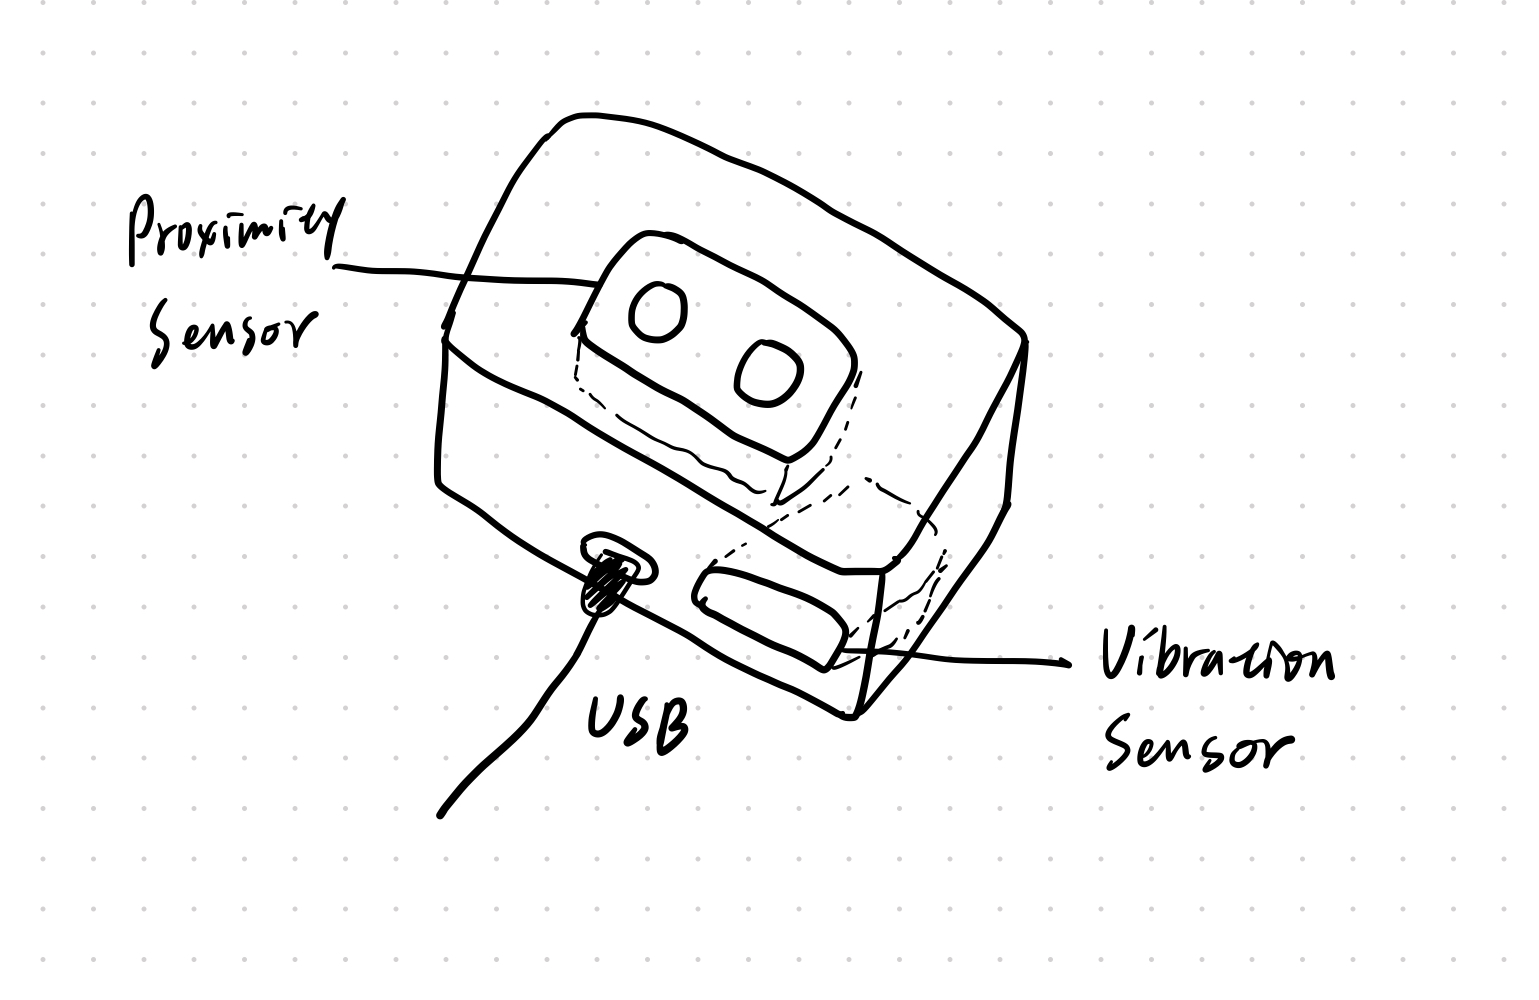 Proximity
Sensor
USB
Vibration
Sensor